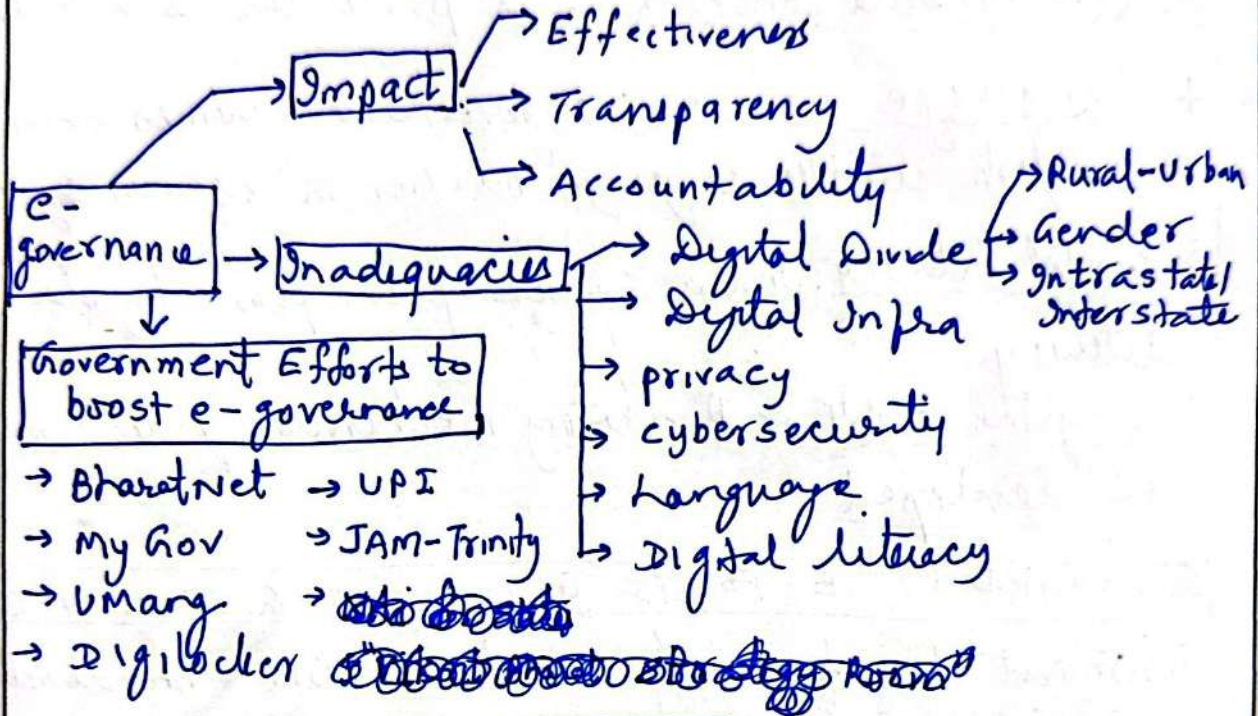 Effectiveness
Impact
Transparency
Accountability
e-
governance
Inadequacies
Digital Divide
Rural-Urban
Gender
Intrastate/
Interstate
Digital Infra
privacy
cybersecurity
Language.
Digital literacy
Government Efforts to
boost e-governance
→ BharatNet → UPI
→ My Gov → JAM-Trinity
→ UMang →
→ Digilocker